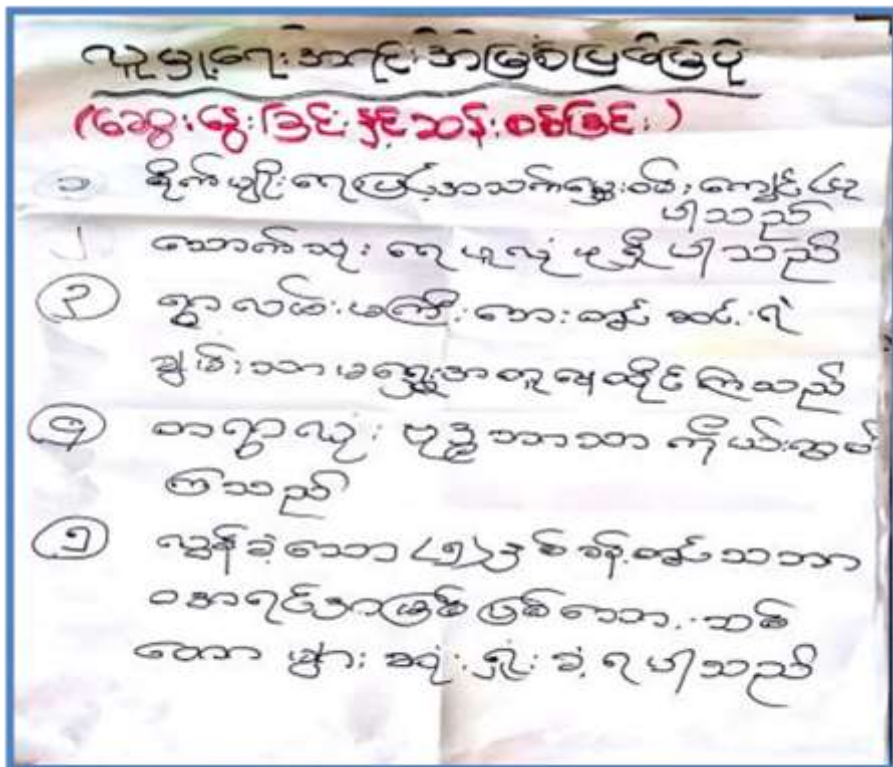 လူမှုရေးအရင်းအမြစ်ပြမြေပုံ
(ဆွေးနွေးခြင်းနှင့်ဆန်းစစ်ခြင်း)
၁ စိုက်ပျိုးရေးဖြင့်အသက်မွေးဝမ်းကျောင်းပြု
ပါသည်
၂ သောက်သုံးရေမလုံမှုရှိပါသည်
၃ ရွာလမ်းမကြီးဘေးတွင် ဆင်းရဲ
ချမ်းသာမရွေးအတူနေထိုင်ကြသည်
၄ တရွာလုံး ဗုဒ္ဓဘာသာ ကိုးကွယ်
ကြသည်
၅ လွန်ခဲ့သော (၅) နှစ်ခန့်တွင် သဘာ
ဝအရင်းအမြစ်ဖြစ်သော သစ်
တော များ ဆုံးရှုံးခဲ့ရပါသည်